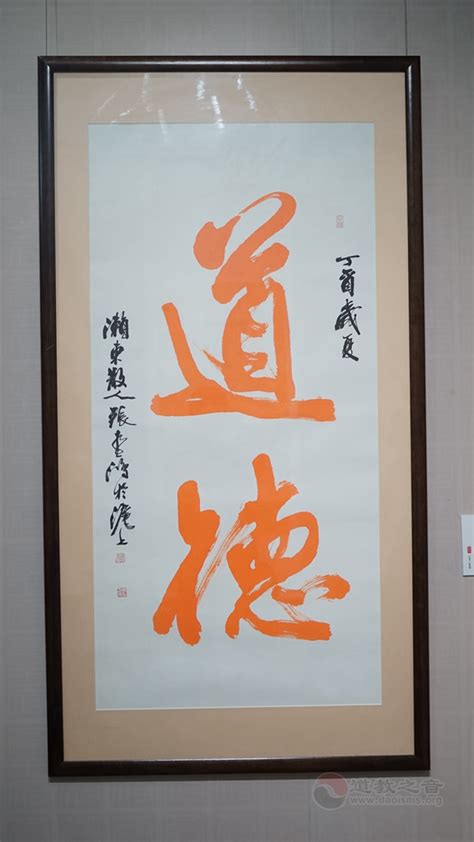 道德
丁酉歲夏
瀨東散人張春鴻於滬上
道教之音
www.daoisms.org